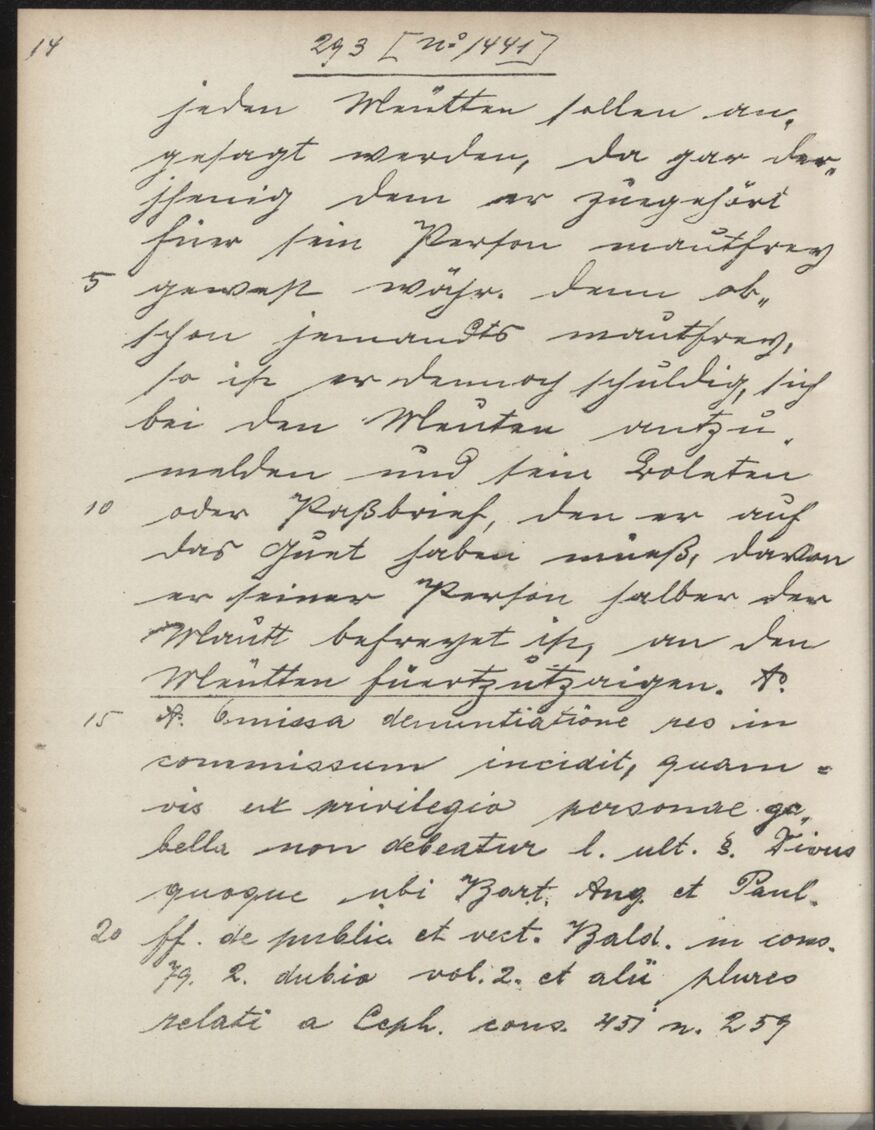 14
293 [No 1441]
jeden Meütten sollen an„
gesagt werden, da gar der„
jhenig dem er zuegehört
fuer sein Person mautfrey
5 gewest währ. denn ob„
schon jemandts mautfrey,
so ist er dennoch schuldig, sich
bei den Meuten antzu„
melden und sein Boleten
10 oder Paßbrief, den er auf
das Guet haben mueß, davon
er seiner Person halber der
Mautt befreyet ist, an den
Meütten füertzutzaigen. A.
15 A. Omissa denuntiatione res in
commissum incidit, quam=
vis ex privilegio personae ga„
bella non debeatur l. ult. §. Divus
quoque ubi Bart. Ang. et Paul.
20 ff. de public. et vect. Bald. in cons.
79. 2. dubio vol. 2. et alii plures
relati a Ceph. cons. 451 n. 259